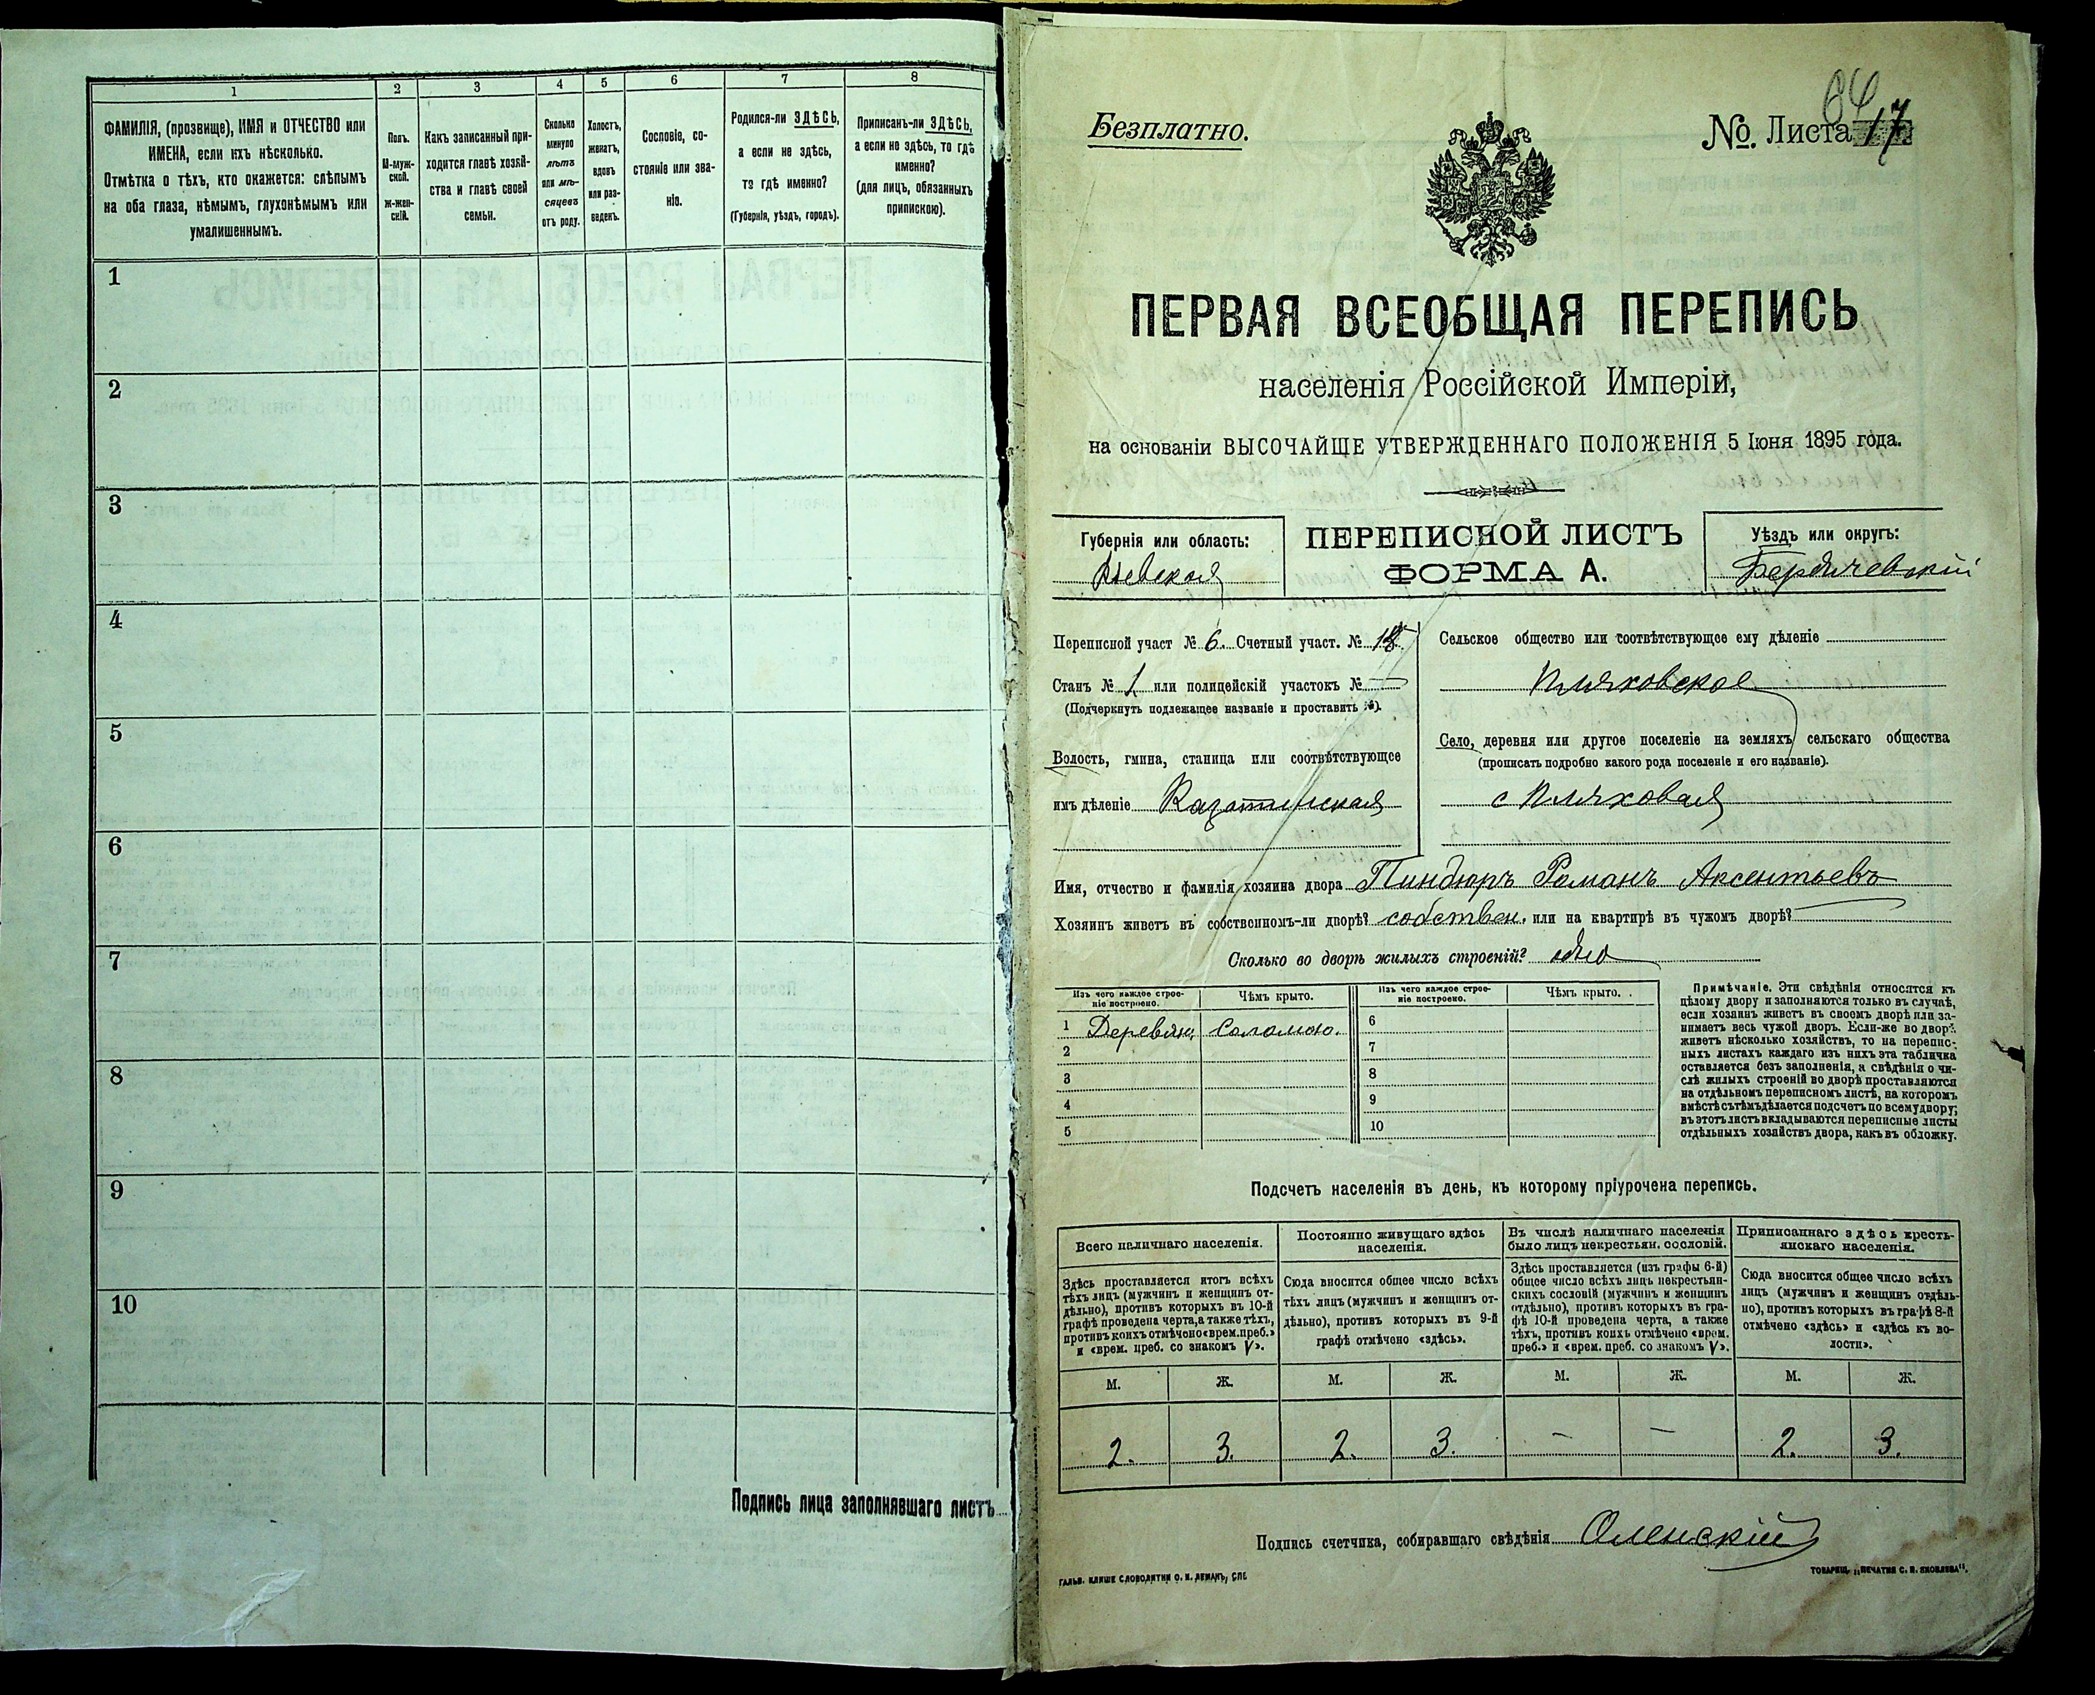 1
2
3
4
5
6
7
8
ФАМИЛІЯ, (прозвище), ИМЯ и ОТЧЕСТВО или
ИМЕНА, если ихъ нѣсколько.
Отмѣтка о тѣхъ, кто окажется: слѣпымъ
на оба глаза, нѣмымъ, глухонѣмымъ или
умалишеннымъ.
Полъ.
М-муж-
ской.
Ж-жен-
скій.
Какъ записанный при-
ходится главѣ хозяй-
ства и главѣ своей
семьи.
Сколько
минуло
лѣтъ
или мѣ-
сяцевъ
отъ роду.
Холостъ,
женатъ,
вдовъ
или раз-
веденъ.
Сословіе, со-
стояніе или зва-
ніе.
Родился-ли ЗДѢСЬ,
а если не здѣсь,
то гдѣ именно?
(Губернія, уѣздъ, городъ).
Приписанъ-ли ЗДѢСЬ,
а если не здѣсь, то гдѣ
именно?
(для лицъ, обязанныхъ
припискою).
1
2
3
4
5
6
7
8
9
10
Подпись лица заполнявшаго листъ
64
Безплатно.
№. Листа 17
ПЕРВАЯ ВСЕОБЩАЯ ПЕРЕПИСЬ
населенія Россійской Имперіи,
на основаніи ВЫСОЧАЙШЕ УТВЕРЖДЕННАГО ПОЛОЖЕНІЯ 5 Іюня 1895 года.
Губернія или область:
Кіевская
ПЕРЕПИСНОЙ ЛИСТЪ
ФОРМА А.
Уѣздъ или округъ:
Бердичевскій
Переписной участ № 6. Счетный участ. №
Станъ № 1 или полицейскій участокъ № —
(Подчеркнуть подлежащее названіе и проставить №).
Волость, гмина, станица или соотвѣтствующее
имъ дѣленіе Казатинская
Сельское общество или соотвѣтствующее ему дѣленіе
Пляховское
Село, деревня или другое поселеніе на земляхъ сельскаго общества
(прописать подробно какого рода поселеніе и его названіе).
с Пляховая
Имя, отчество и фамилія хозяина двора Пиндюръ Романъ Аксентьевъ
Хозяинъ живетъ въ собственномъ-ли дворѣ? собствен. или на квартирѣ въ чужомъ дворѣ?
Сколько во дворѣ жилыхъ строеній? одно
Изъ чего каждое строе-
ніе построено.
Чѣмъ крыто.
Изъ чего каждое строе-
ніе построено.
Чѣмъ крыто.
1 Деревян. Соломою.
2
3
4
5
6
7
8
9
10
Примѣчаніе. Эти свѣдѣнія относятся къ
цѣлому двору и заполняются только въ случаѣ,
если хозяинъ живетъ въ своемъ дворѣ или за-
нимаетъ весь чужой дворъ. Если-же во дворѣ
живетъ нѣсколько хозяйствъ, то на перепис-
ныхъ листахъ каждаго изъ нихъ эта табличка
оставляется безъ заполненія, а свѣдѣнія о чи-
слѣ жилыхъ строеній во дворѣ проставляются
на отдѣльномъ переписномъ листѣ, на которомъ
вмѣстѣ съ тѣмъ дѣлается подсчетъ по всему двору;
въ этотъ листъ вкладываются переписные листы
отдѣльныхъ хозяйствъ двора, какъ въ обложку.
Подсчетъ населенія въ день, къ которому пріурочена перепись.
Всего наличнаго населенія.
Постоянно живущаго здѣсь
населенія.
Въ числѣ наличнаго населенія
было лицъ некрестьян. сословій.
Приписаннаго здѣсь кресть-
янскаго населенія.
Здѣсь проставляется итогъ всѣхъ
тѣхъ лицъ (мужчинъ и женщинъ от-
дѣльно), противъ которыхъ въ 10-й
графѣ проведена черта, а также тѣхъ,
противъ коихъ отмѣчено «врем. преб.»
и «врем. преб. со знакомъ V».
Сюда вносится общее число всѣхъ
тѣхъ лицъ (мужчинъ и женщинъ от-
дѣльно), противъ которыхъ въ 9-й
графѣ отмѣчено «здѣсь».
Здѣсь проставляется (изъ графы 6-й)
общее число всѣхъ лицъ некрестьян-
скихъ сословій (мужчинъ и женщинъ
отдѣльно), противъ которыхъ въ гра-
фѣ 10-й проведена черта, а также
тѣхъ, противъ коихъ отмѣчено «врем.
преб.» и «врем. преб. со знакомъ V».
Сюда вносится общее число всѣхъ
лицъ (мужчинъ и женщинъ отдѣль-
но), противъ которыхъ въ графѣ 8-й
отмѣчено «здѣсь» и «здѣсь къ во-
лости».
М. Ж. М. Ж. М. Ж. М. Ж.
2. 3. 2. 3. — — 2. 3.
Подпись счетчика, собиравшаго свѣдѣнія Оленскій
ГАЛЬВ. КЛИШЕ СЛОВОЛИТНИ О. И. ЛЕМАНЪ, СПБ
ТОВАРИЩ. „ПЕЧАТНЯ С. П. ЯКОВЛЕВА".